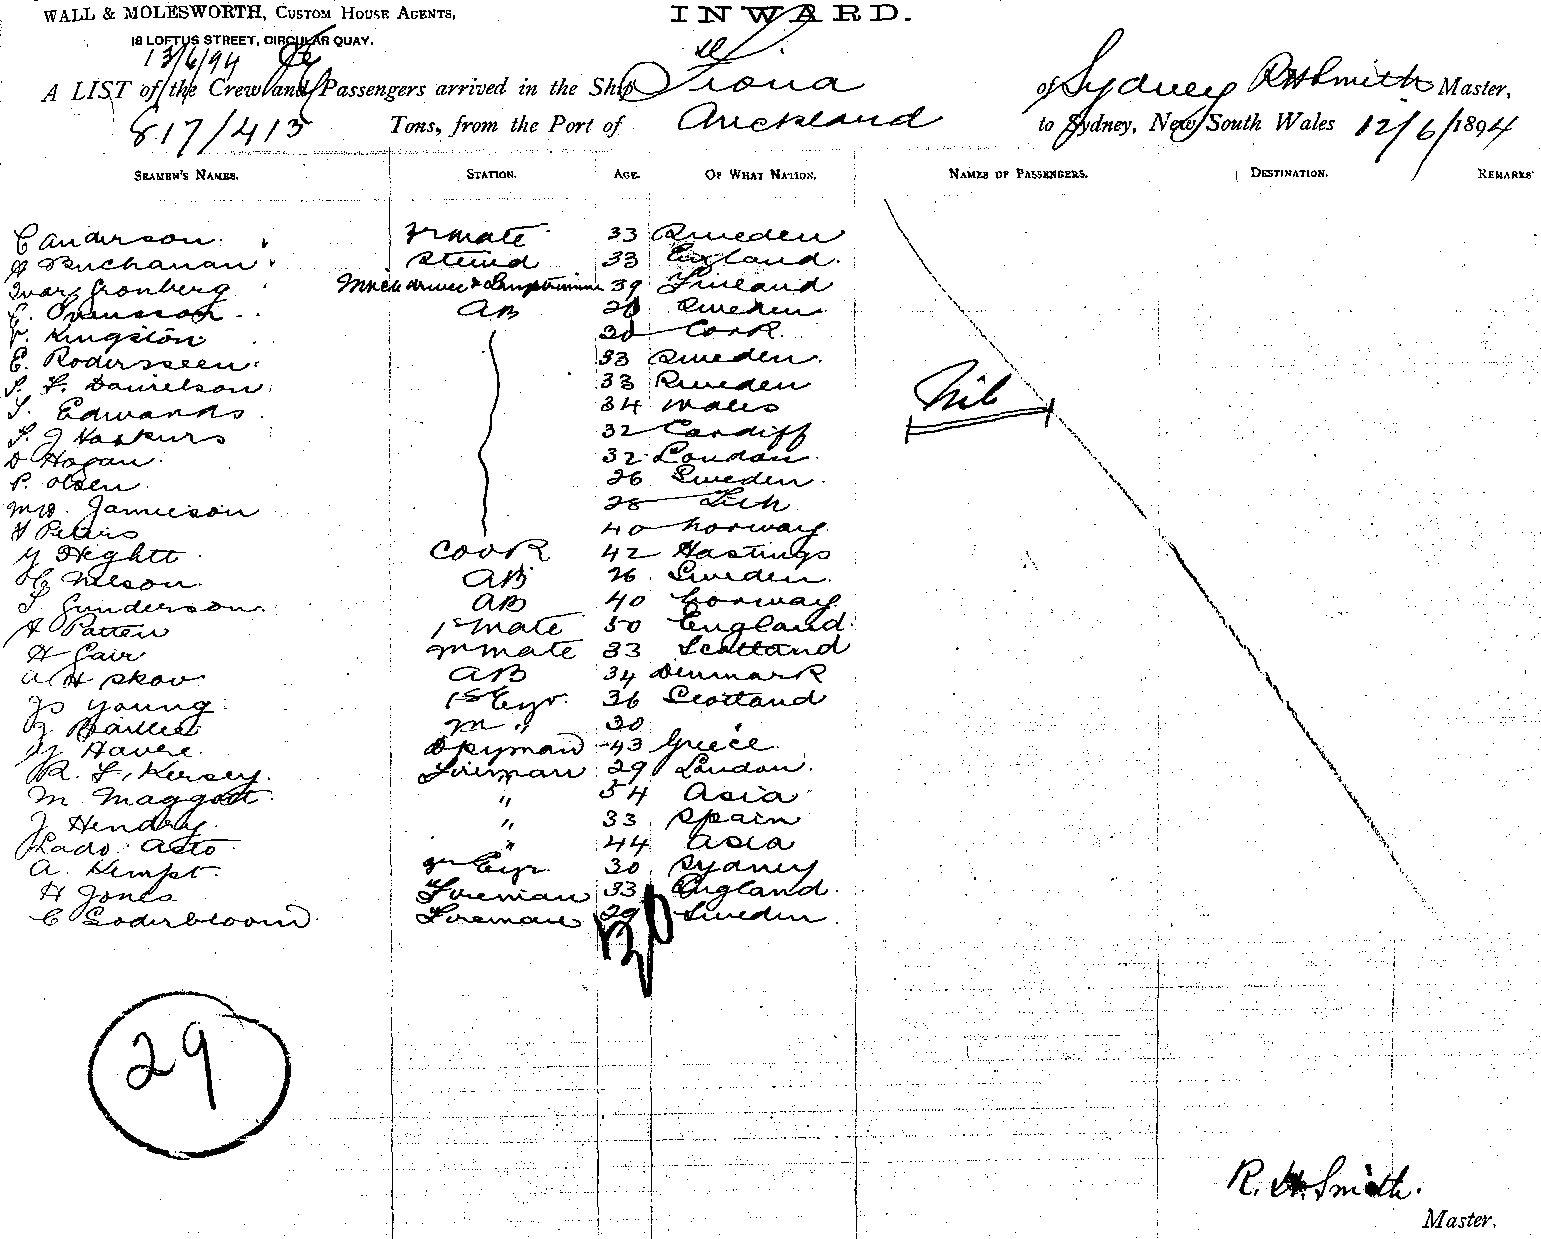 WALL & MOLESWORTH, CUSTOM HOUSE AGENTS,
INWARD.
18 LOFTUS STREET, CIRCULAR QUAY.
13/6/94
A LIST of the Crew and Passengers arrived in the Ship Fiona of Sydney R H Smith Master,
817/413 Tons, from the Port of Auckland to Sydney, New South Wales 12/6/1894
SEAMEN'S NAMES. STATION. AGE. OF WHAT NATION. NAMES OF PASSENGERS. DESTINATION. REMARKS
C Anderson mate 33 Sweden
Buchanan Stewd 33 England
Ivar Gronberg 39 Finland
Svensson AB Sweden
Kingston Cork
E. Roderseen 33 Sweden
S. F. Danielson 33 Sweden
Edwards 34 Wales
S. J Haskurs 32 Cardiff
D Hogan 32 London
P. Olsen 26 Sweden
Jamieson 28
Peters 40 Norway
Heghtt Cook 42 Hastings
C Nelson AB 26 Sweden
Gunderson AB 40 Norway
A Patten 1st Mate 50 England
H Gair mate 33 Scotland
A H Skov AB 34 Denmark
Young 1st Egr 36 Scotland
Baillie " 30 "
Havre Dkyman 43 Greece
R. F. Kersey Fireman 29 London
M Maggott " 54 Asia
J Hendry " 33 Spain
Lado Asto " 44 Asia
A. Kempt Egr 30 Sydney
H Jones Fireman 33 England
C Soderbloom Fireman 29 Sweden
Nil
29
R. H. Smith.
Master.